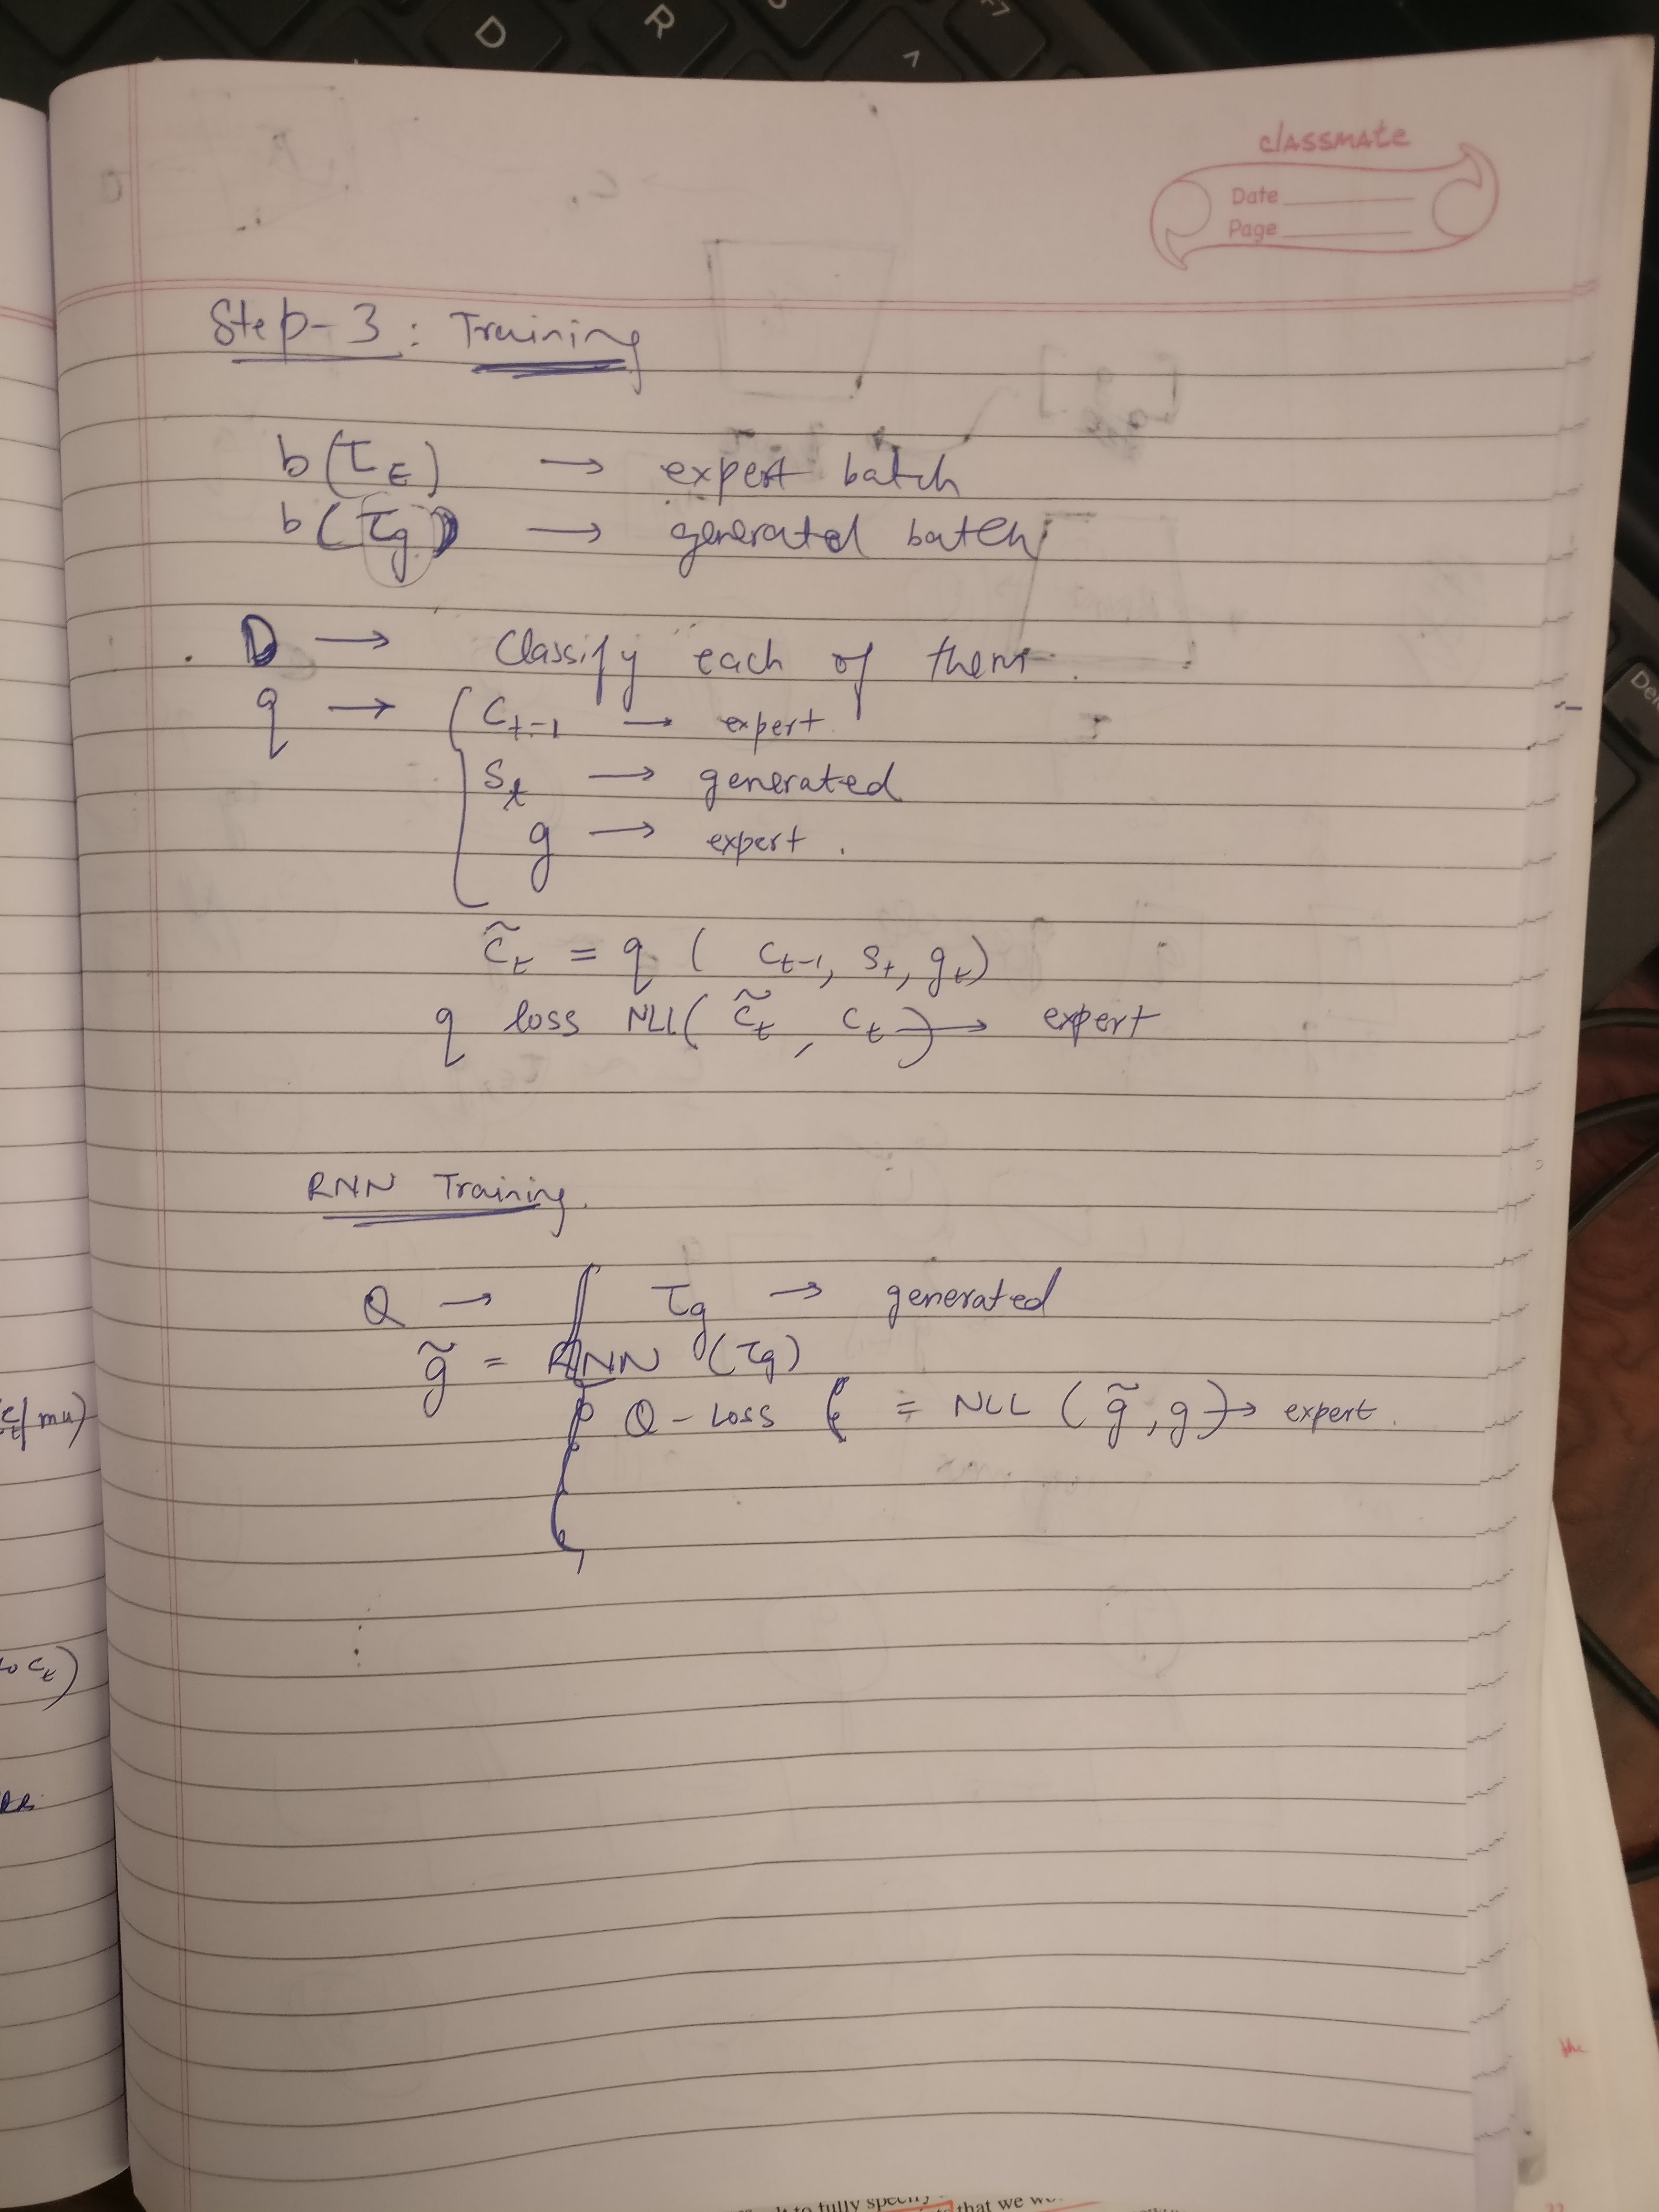 D R F7
classmate
Date
Page
Step-3: Training
b(τ_E) → expert batch
b(τ_g) → generated batch
D → Classify each of them.
q → { c_{t-1} → expert
s_t → generated
g → expert.
c̃_t = q ( c_{t-1}, s_t, g_t)
q loss NLL( c̃_t, c_t) → expert
RNN Training.
Q → τ_g → generated
g̃ = RNN (τ_g)
Q - Loss = NLL ( g̃, g) → expert.
to fully specify
that we